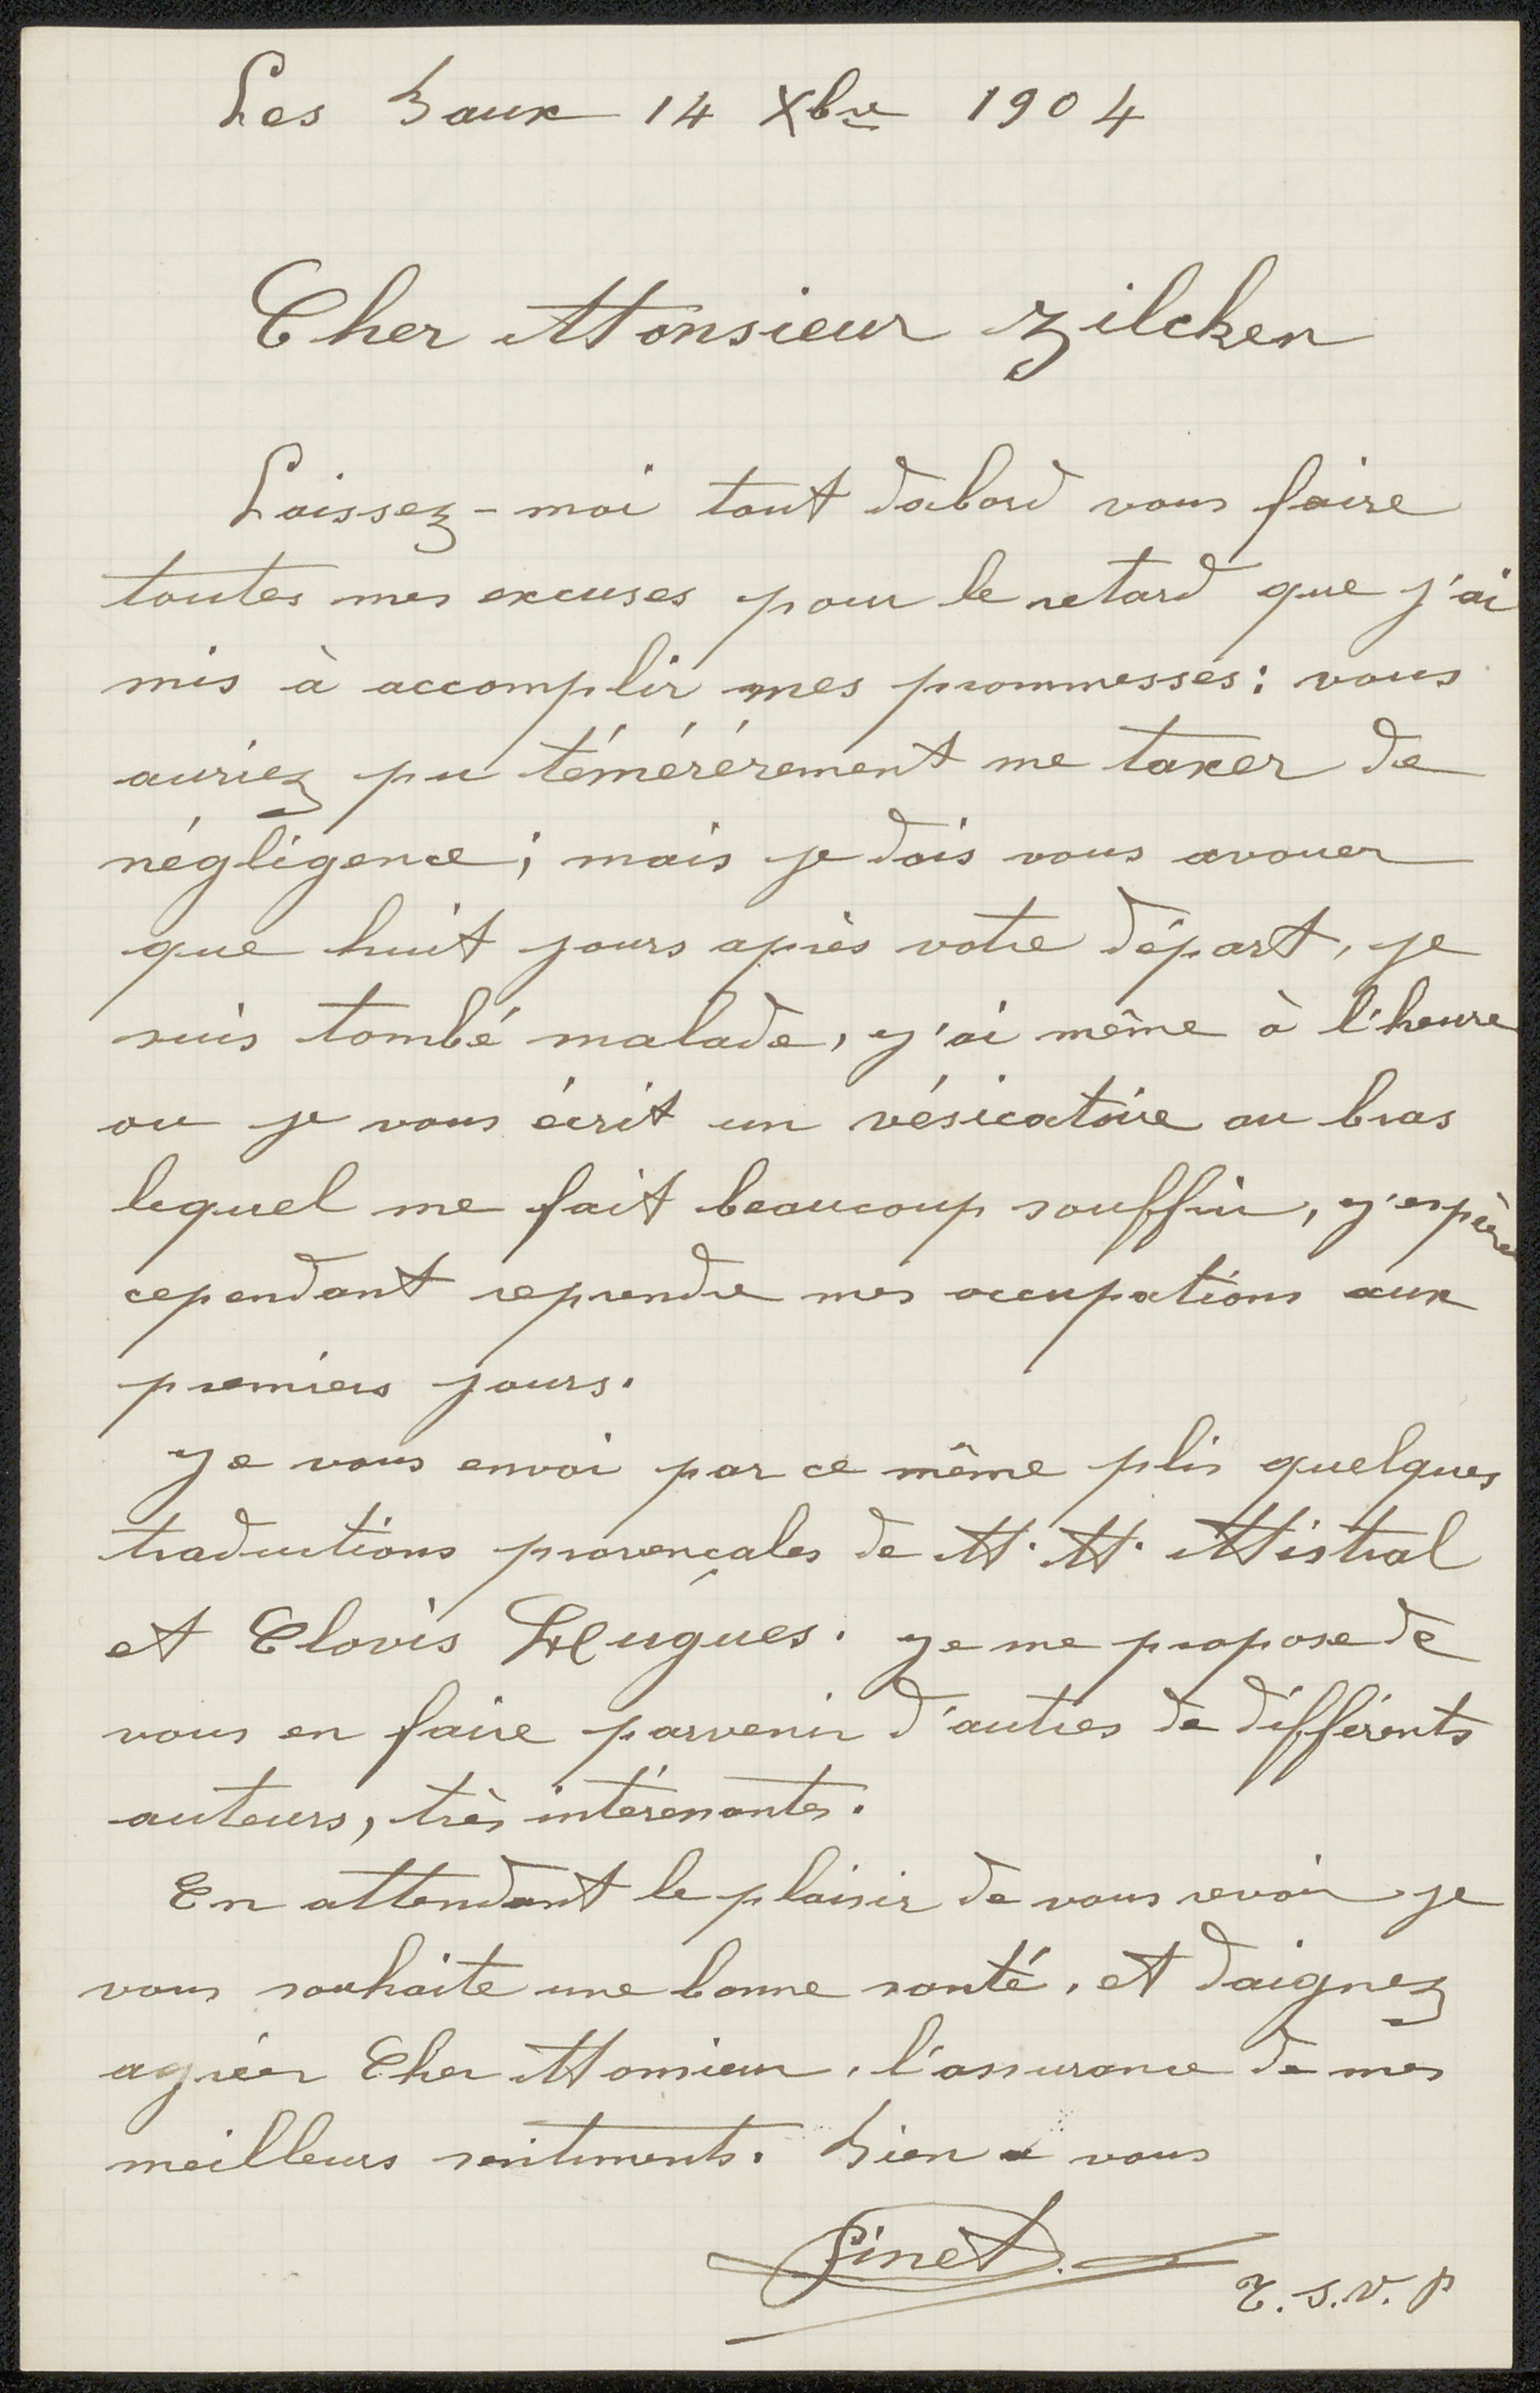 Les Baux 14 Xbre 1904
Cher Monsieur Zilcken
Laissez-moi tout dabord vous faire
toutes mes excuses pour le retard que j'ai
mis à accomplir mes prommesses: vous
auriez pu témérérement me taxer de
négligence; mais je dois vous avouer
que huit jours après votre départ, je
suis tombé malade, j'ai même à l'heure
ou je vous écrit un vésicatoire au bras
lequel me fait beaucoup souffrir, j'espère
cependant reprendre mes occupations aux
premiers jours.
Je vous envoi par ce même plis quelques
traductions provençales de M. M. Mistral
et Clovis Hugues. Je me propose de
vous en faire parvenir d'autres de différents
auteurs, très intéressantes.
En attendant le plaisir de vous revoir je
vous souhaite une bonne santé, et daignez
agréer Cher Monsieur, l'assurance de mes
meilleurs sentiments. Bien a vous
Finet.
T.S.V.P